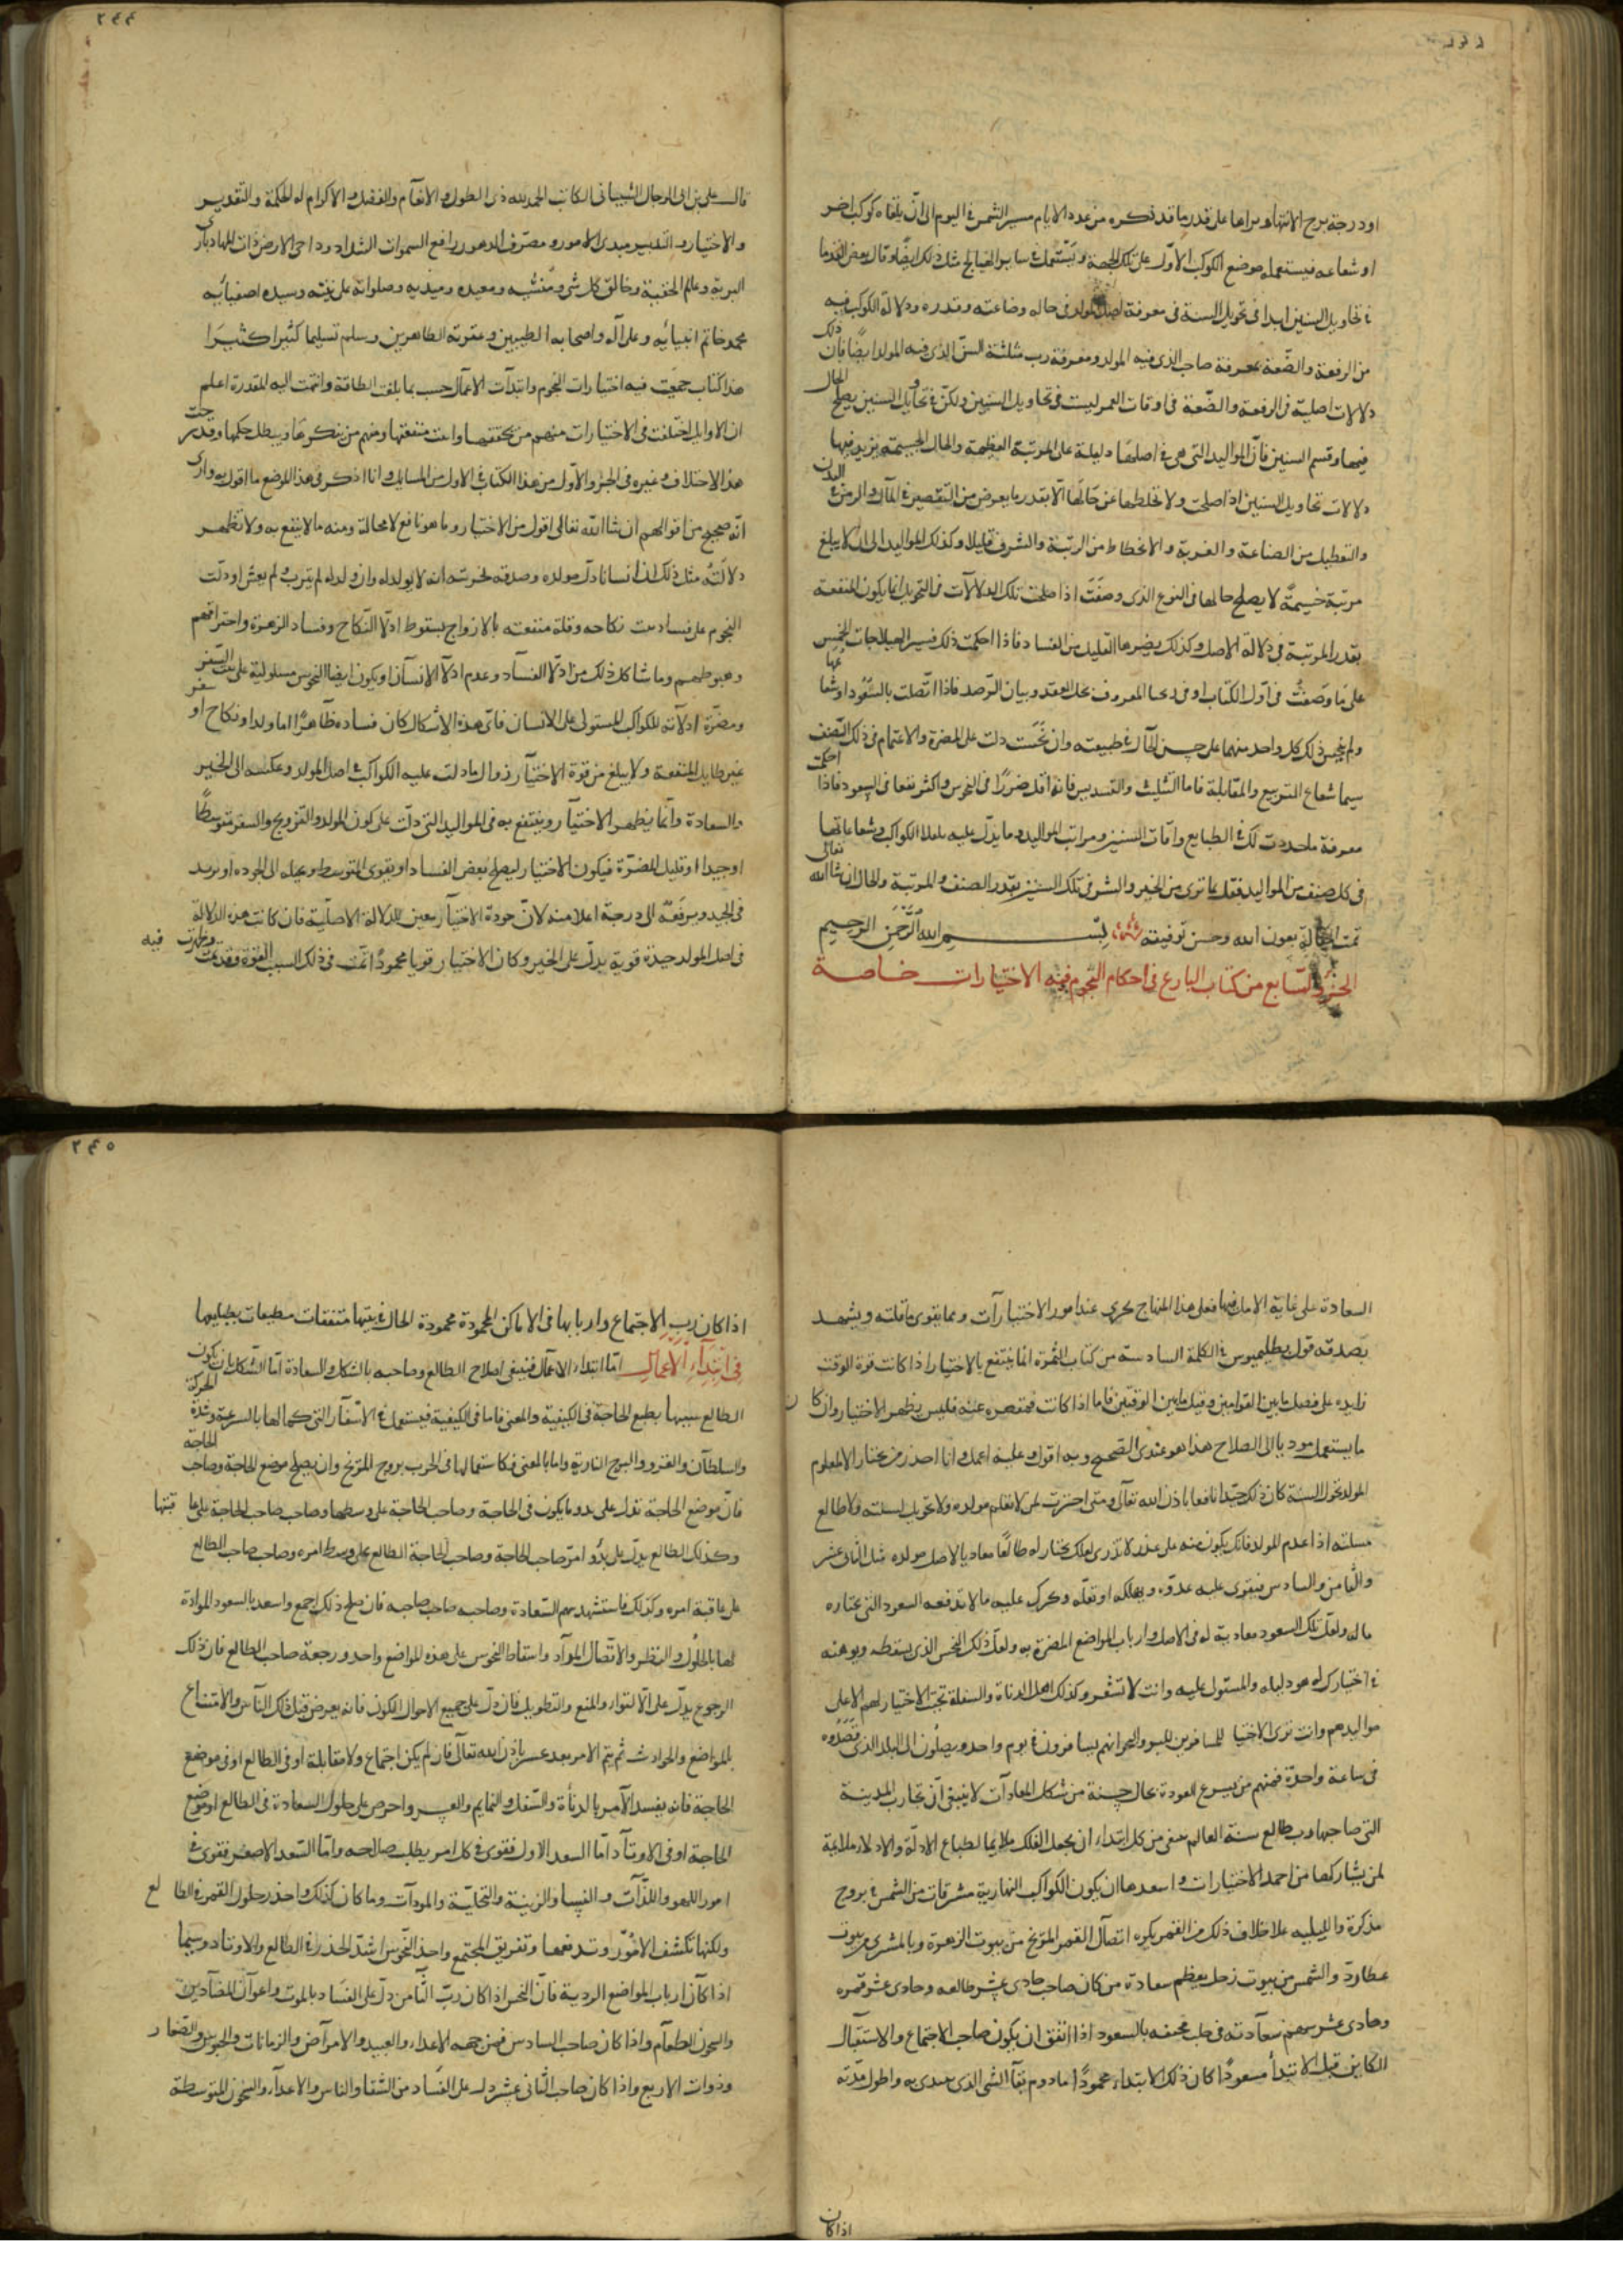 او درجة برج الانتهاء وبراها على قدر ما قد نذكره من عدد الايام مسير الشمس في اليوم الى ان يلقاه كوكب اخر
او شعاعه فيستعمله موضع الكوكب الاول على تلك الجهة وتستعمل سائر الهيالج مثل ذلك ايضا وقال بعض القدما
في تحاويل السنين ابدا في تحويل السنة في معرفة اصل المولد في حاله وضاعته وقدره ودلالة الكوكب فيه
من الرفعة والضعة بمعرفة صاحب الذي فيه المولد ومعرفة رب مثلثة السن الذي فيه المولد ايضا فان ذلك
دلالات اصلية في الرفعة والضعة في اوقات العمر ليست في تحاويل السنين ولكن في تحاويل السنين يصلح الحال
فيها وقسم السنين فان المواليد التي هي في اصلها دليلة على المرتبة العظيمة والحال الجسيمة يزيد فيها
دلالات تحاويل السنين اذا صلحت ولا تخلطها عن حالها الا بقدر ما يعرض من التقصير في المال والمرض في البدن
والتعطيل من الصناعة والغربة والانحطاط من الرتبة والشرف قليلا وكذلك المواليد الى ان لا يبلغ
مرتبة خسيسة لا يصلح حالها في النوع الذي وصفت اذا صلحت تلك الدلالات في التحويل انما يكون المنفعة
بقدر المرتبة في دلالة الاصل وكذلك يضرها القليل من الفساد فاذا احكمت ذلك فسير الهيلاجات الخمس
على ما وصفت في اول الكتاب او في زيجنا المعروف بحل العقد وبيان الرصد فاذا اتصلت بالسعود او شعاعها
ولم ينحس ذلك كل واحد منهما على حسن الحال في طبيعته وان نحست دلت على المضرة والاغتمام في ذلك الصنف
سيما شعاع التربيع والمقابلة فاما التثليث والتسديس فانه اقل ضررا في النحوس واكثر نفعا في السعود فاذا احكمت
معرفة ما حددت لك في الطبايع واقات السنين ومراتب المواليد وما يدل عليه بلغلا الكواكب وشعاعاتها
في كل صنف من المواليد فقل بما ترى من الخير والشر في تلك السنين بقدر الصنف والمرتبة والحال ان شا الله تعالى
تمت المقالة بعون الله وحسن توفيقه بسم الله الرحمن الرحيم
الجزو السابع من كتاب البارع في احكام النجوم فيه الاختيارات خاصة
٢٤٤
قال علي بن ابي الرجال الشيباني الكاتب الحمد لله ذي الطول والانعام والفضل والاكرام له الحكمة والتقدير
والاختيار والتدبير مبدئ الامور ومصرف الدهور رافع السموات الشداد وداحي الارض ذات المهاد بارئ
البرية وعالم الخفية وخالق كل شي ومنشيه ومعيده ومبديه وصلواته على نبيه وسيده اصفيائه
محمد خاتم انبيائه وعلى آله واصحابه الطيبين وعترته الطاهرين وسلم تسليما كثيرا كثيرا
هذا كتاب جمعت فيه اختيارات النجوم وابتدآت الاعمال حسب ما بلغت الطاقة وانتهت اليه المقدرة اعلم
ان الاوايل اختلفت في الاختيارات منهم من يحققها واثبت منفعتها ومنهم من ينكرها ويبطل حكمها وقد جئت
هذا الاختلاف وغيره في الجزو الاول من هذا الكتاب في الاول من المسايل وانا اذكر في هذا الموضع ما اقول به وارى
انه صحيح من اقوالهم ان شا الله تعالى اقول من الاختيار وما هو نافع لا محالة ومنه ما لا ينتفع به ولا تظهر
دلالته مثل ذلك ان انسانا دل مولده وصدقه نحوسته انه لا يولد له وان ولد له لم يترب ولم يعش او دلت
النجوم على فساد بيت نكاحه وقلة منفعته بالازواج بسقوط ادلا النكاح وفساد الزهرة واحتراقهم
وهبوطهم وما شاكل ذلك من ادلا الفساد وعدم ادلا الانسان او يكون ايضا النحوس مستولية على بيت السفر
ومضرة ادلاته للكواكب المستولي على الانسان فاتى هذه الاشكال كان فساده ظاهرا اما ولد او نكاح او سفر
غير طايل المنفعة ولا يبلغ من قوة الاختيار زوال ما دلت عليه الكواكب في اصل المولد وعكسه الى الخير
والسعادة وانما يظهر الاختيار وينتفع به في المواليد التي دلت على كون المولد والتزويج والسفر متوسطا
او جيدا او قليل المضرة فيكون الاختيار ليصلح بعض الفساد او يقوي المتوسط ويميله الى الجوده او يزيد
في الجيد ويرفعه الى درجة اعلا منه لان جودة الاختيار يعين للدلالة الاصلية فان كانت هذه الدلالة
في اصل المولد جيدة قوية يدل على الخير وكان الاختيار قويا محمودا اتمت في ذلك السبب القوة فقد بلغت وظهرت فيه
السعادة على غاية الامل فيها فعلى هذا المنهاج تجري عند امور الاختيارات ومما يقوي ما قلته ويشهد
بصدقه قول بطلميوس في الكلمة السادسة من كتاب الثمرة انما ينتفع بالاختيار اذا كانت قوة الوقت
زايدة على فصل ما بين القوامين وقيل ما بين الوقتين فاما اذا كانت مقصرة عنه فليس يظهر الاختيار وان كان
ما يستعمل موديا الى الصلاح هذا هو عندي الصحيح وبه اقول وعليه اعمل وانا احذر من يختار الا لمعلوم
المولد تحول السنة كان ذلك جيدا نافعا باذن الله تعالى ومتى اخترت لمن لا تعلم مولده ولا تحويل لسنته ولا طالع
مسلته اذا عدم المولد فانك يكون منه على غدر لا تدري لعلك تختار له طالعا معاديا لاصل مولده مثل الثاني عشر
والثامن والسادس فيقوى عليه عدوه ويهلكه او تعله وتحرك عليه ما لا تدفعه السعود التي تختاره
ما له ولعل تلك السعود معادية له في الاصل وارباب المواضع المضرة به ولعل ذلك النحس الذي يسقطه ويوهنه
في اختيارك له هو دليله والمستولي عليه وانت لا تشعر وكذلك اهل الدناة والسفلة تجنب الاختيار لهم الا على
مواليدهم وانت ترى الاختيار للمسافرين للبر والبحر انهم يسافرون في يوم واحد ويصلون الى البلد الذي قصدوه
في ساعة واحدة فمنهم من يسرع العودة بحال حسنة من شكل المعادات لا ينبغي ان تحارب المدينة
التي صاحبها رب طالع سنة العالم ينبغي من كل ابتداء ان يجعل الفلك ملايما لطباع الادلة والادلا ملايمة
لمن يشاركها من احمد الاختيارات واسعدها ان يكون الكواكب النهارية مشرقات من الشمس في بروج
مذكرة والليلية علا خلاف ذلك من القمر يكره اتصال القمر المريخ من بيوت الزهرة وبالمشتري من بيوت
عطارد والشمس من بيوت زحل يعظم سعادة من كان صاحب حادي عشر طالعه وحادي عشر قمره
وحادي عشر سهم سعادته في قلب محفه بالسعود اذا اتفق ان يكون صاحب الاجتماع والاستقبال
الكاين قبل الابتدأ مسعودا كان ذلك الابتداء محمودا ما دوم بقآ الشي الذي يبتدئ به واطول مدته
اذا كان
٢٤٥
اذا كان رب الاجتماع واربابها في الاماكن المحمودة محمودة الحال في بيتها متفقات مطبعات بطبايعها
في ابتداء الاعمال اما ابتداء الاعمال فينبغي اصلاح الطالع وصاحبه بالشكل والسعادة اما الشكل بان يكون
الطالع شبيها بطبع الحاجة في الكيفية والمعنى فاما في الكيفية فيستعمل في الاسفار التي كمالها بالسرعة وشدة الحركة
والسلطان والقر والبروج النارية واما بالمعنى فكاستعمالها في الحرب بروج المريخ وان يصلح موضع الحاجة وصاحب الحاجة
فان موضع الحاجة تدل على بدو ما يكون في الحاجة وصاحب الحاجة على وسطها وصاحب صاحب الحاجة على عاقبتها
وكذلك الطالع يدل على بدو امر صاحب الحاجة وصاحب الحاجة الطالع على وسط امره وصاحب صاحب الطالع
على عاقبة امره وكذلك فاستشهد سهم السعادة وصاحبه صاحب صاحبه فان صلح ذلك اجمع واسعد بالسعود المواده
لها بالحلول والنظر والاتصال المواد واسقاط النحوس على هذه المواضع واحذر رجعة صاحب الطالع فان ذلك
الرجوع يدل على الالتواء والمنع والتطويل فان دل على جميع الاحوال الكون فانه يعرض قبل ذلك الياس والامتناع
بالمواضع والحوادث ثم يتم الامر بعد عسر باذن الله تعالى فان لم يكن اجتماع ولا مقابلة او في الطالع او في موضع
الحاجة فانه يفسد الامر بالدنأة والسفل والنمايم والعسر واحرص على حلول السعادة في الطالع او موضع
الحاجة او في الاوتاد اما السعد الاول فقوي في كل امر يطلب صالحه واما السعد الاصغر فقوي في
امور اللهو واللذات والنسا والزينة والتحلية والمودآت وما كان كذلك واحذر حلول القمر في الطالع
ولكنها تكشف الامور وتدفعها وتفريق المجتمع واحذر النحوس اشد الحذر في الطالع والاوتاد وسيما
اذا كان ارباب المواضع الردية فان النحس اذا كان رب الثامن دل على الفساد بالموت واعوان المضادين
والسجون الطعام واذا كان صاحب السادس فمن جهه الاعداء والعبيد والامراض والزمانات والحبوس والصغار
وذوات الاربع واذا كان صاحب الثاني عشر دل على الفساد من الشقا والناس والاعداء والسجون المتوسطة